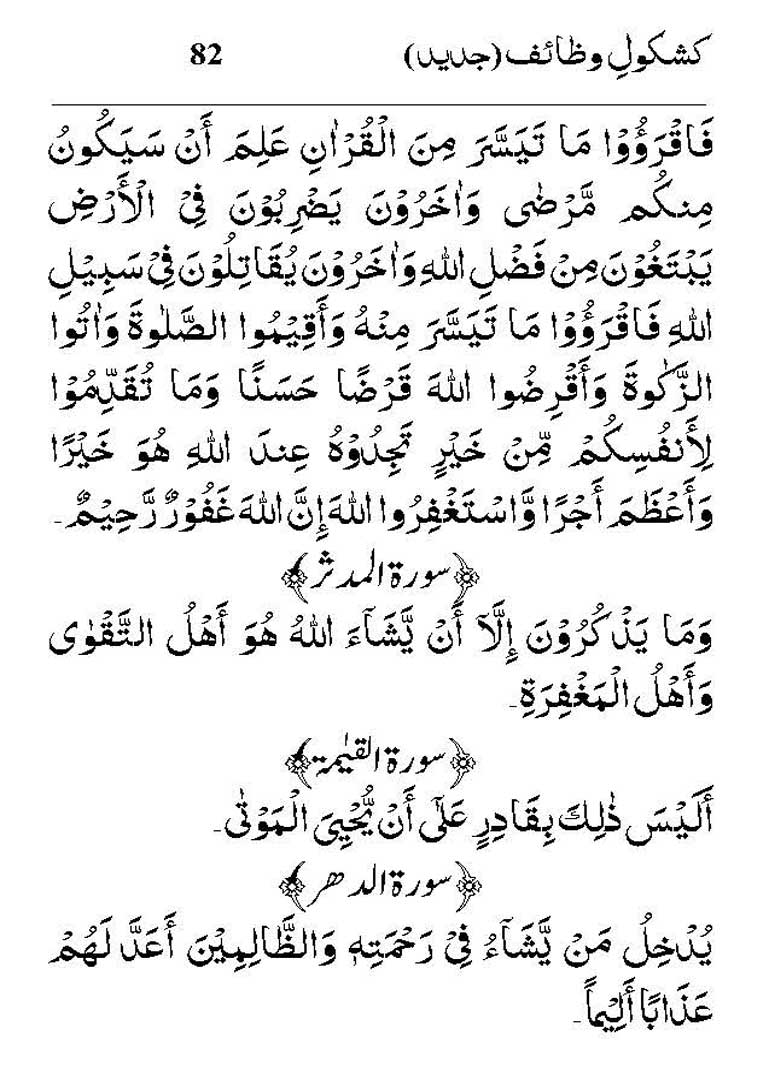 کشکولِ وظائف (جدید) 82
فَاقْرَؤُوْا مَا تَيَسَّرَ مِنَ الْقُرْاٰنِ عَلِمَ أَنْ سَيَكُونُ
مِنكُم مَّرْضٰى وَاٰخَرُوْنَ يَضْرِبُوْنَ فِيْ الْأَرْضِ
يَبْتَغُوْنَ مِنْ فَضْلِ اللهِ وَاٰخَرُوْنَ يُقَاتِلُوْنَ فِيْ سَبِيْلِ
اللهِ فَاقْرَؤُوْا مَا تَيَسَّرَ مِنْهُ وَأَقِيْمُوا الصَّلٰوةَ وَاٰتُوا
الزَّكٰوةَ وَأَقْرِضُوا اللهَ قَرْضًا حَسَنًا وَمَا تُقَدِّمُوْا
لِأَنفُسِكُمْ مِّنْ خَيْرٍ تَجِدُوْهُ عِندَ اللهِ هُوَ خَيْرًا
وَأَعْظَمَ أَجْرًا وَّاسْتَغْفِرُوا اللهَ إِنَّ اللهَ غَفُوْرٌ رَّحِيْمٌ۔
﴿سورۃ المدثر﴾
وَمَا يَذْكُرُوْنَ إِلَّآ أَنْ يَّشَآءَ اللهُ هُوَ أَهْلُ التَّقْوٰى
وَأَهْلُ الْمَغْفِرَةِ۔
﴿سورۃ القیٰمۃ﴾
أَلَيْسَ ذٰلِكَ بِقَادِرٍ عَلٰٓى أَنْ يُّحْيِيَ الْمَوْتٰى۔
﴿سورۃ الدھر﴾
يُدْخِلُ مَنْ يَّشَآءُ فِيْ رَحْمَتِهٖ وَالظَّالِمِيْنَ أَعَدَّ لَهُمْ
عَذَابًا أَلِيْماً۔